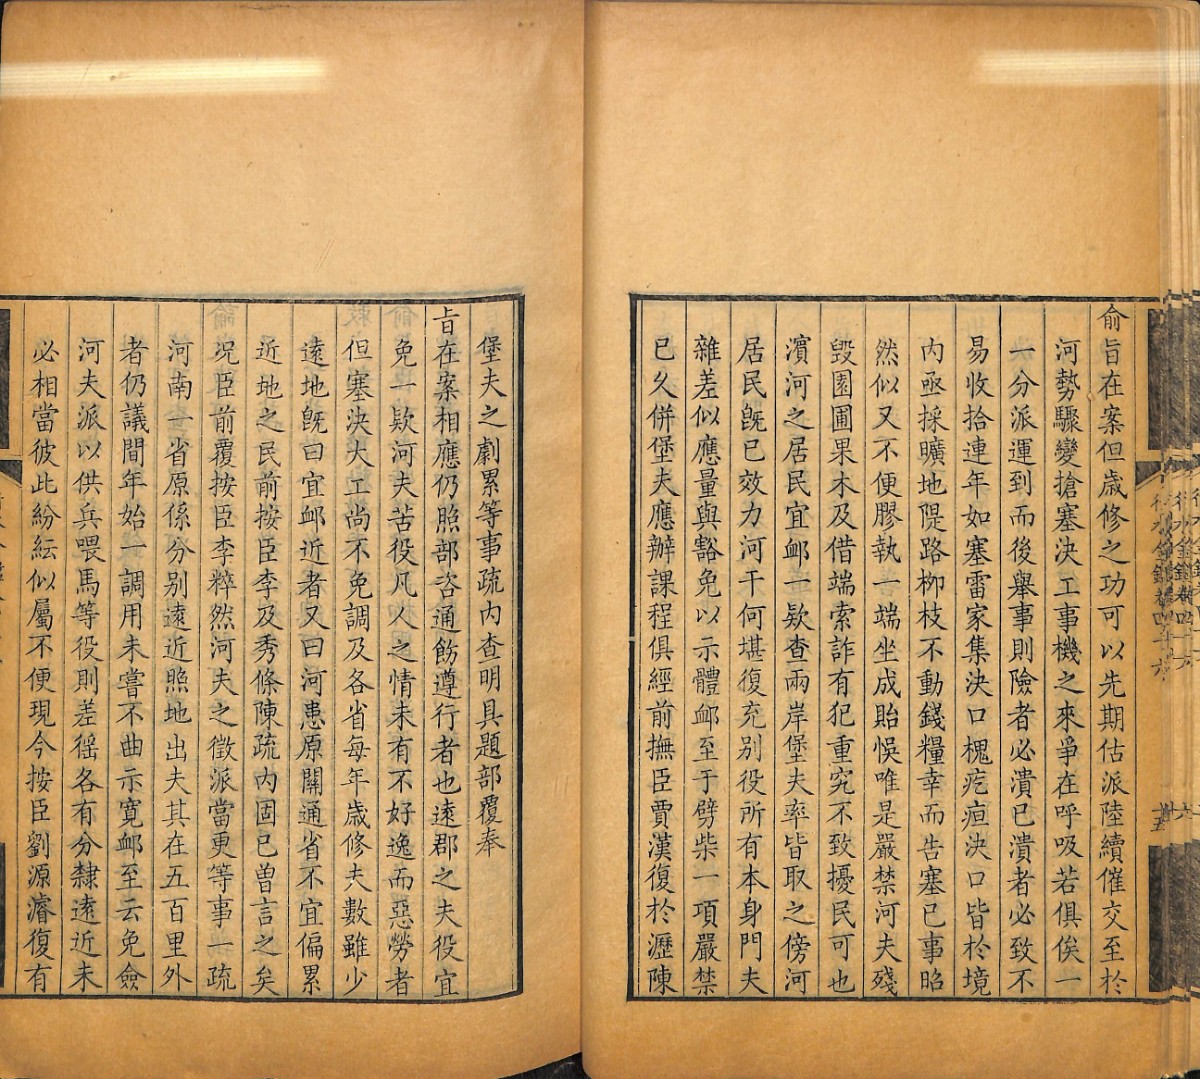 俞旨在案但歲修之功可以先期估派陸續催交至於
河勢驟變搶塞決工事機之來爭在呼吸若俱俟一
一分派運到而後舉事則險者必潰已潰者必致不
易收拾連年如塞雷家集決口槐疙疸決口皆於境
內亟採曠地隄路柳枝不動錢糧幸而告塞已事昭
然似又不便膠執一端坐成貽悞唯是嚴禁河夫殘
毀園圃果木及借端索詐有犯重究不致擾民可也
濱河之居民宜䘏一欵查兩岸堡夫率皆取之傍河
居民旣已效力河干何堪復充别役所有本身門夫
雜差似應量與豁免以示體䘏至于劈柴一項嚴禁
已久併堡夫應辦課程俱經前撫臣賈漢復於瀝陳
堡夫之劇累等事疏內查明具題部覆奉
旨在案相應仍照部咨通飭遵行者也遠郡之夫役宜
免一欵河夫苦役凡人之情未有不好逸而惡勞者
但塞決大工尚不免調及各省每年歲修夫數雖少
遠地旣曰宜䘏近者又曰河患原關通省不宜偏累
近地之民前按臣李及秀條陳疏內固已曾言之矣
况臣前覆按臣李粹然河夫之徵派當更等事一疏
河南一省原係分别遠近照地出夫其在五百里外
者仍議間年始一調用未嘗不曲示寬䘏至云免僉
河夫派以供兵喂馬等役則差徭各有分隸遠近未
必相當彼此紛紜似屬不便現今按臣劉源濬復有